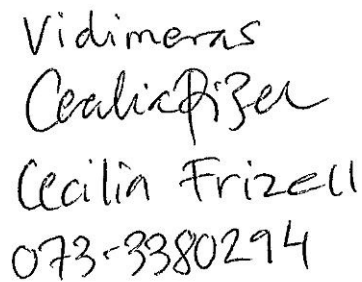 Vidimeras
Cecilia Frizell
Cecilia Frizell
073-3380294